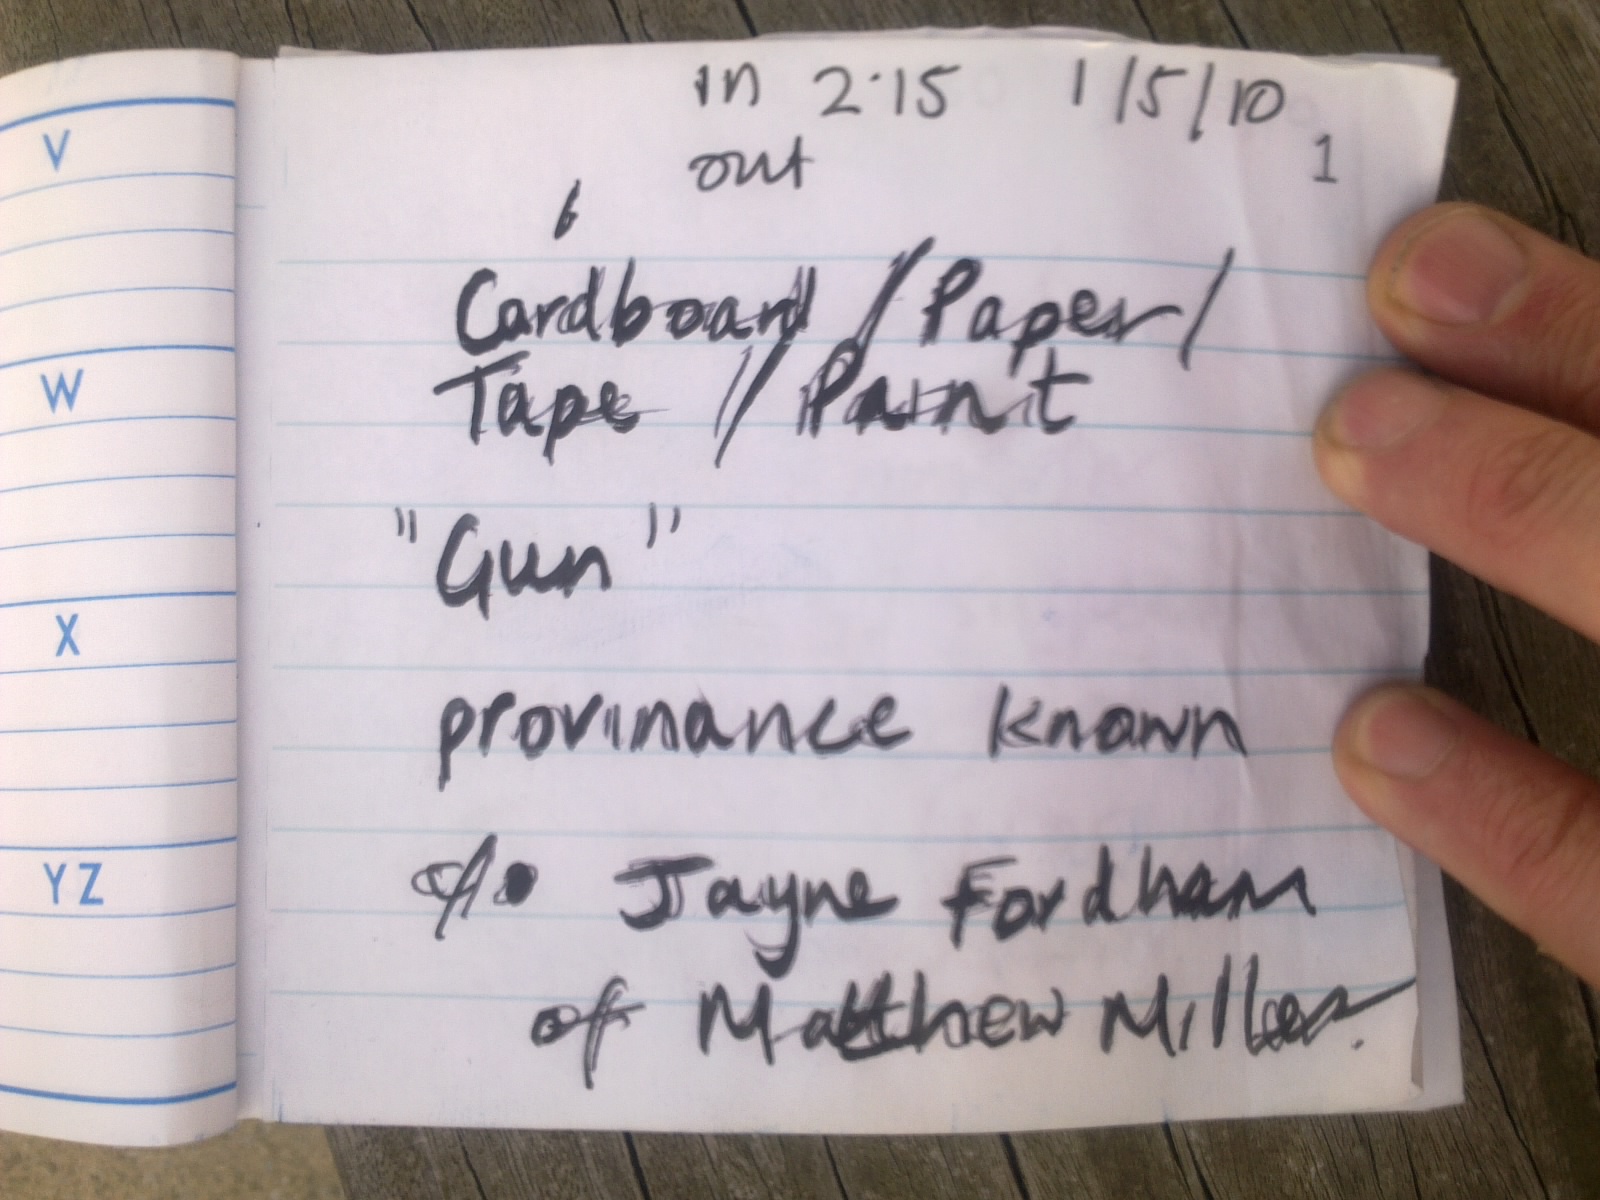 V
W
X
YZ
in 2·15 1/5/10
out 1
Cardboard / Paper /
Tape // Paint
"Gun"
provinance known
c/o Jayne Fordham
of Matthew Miller.